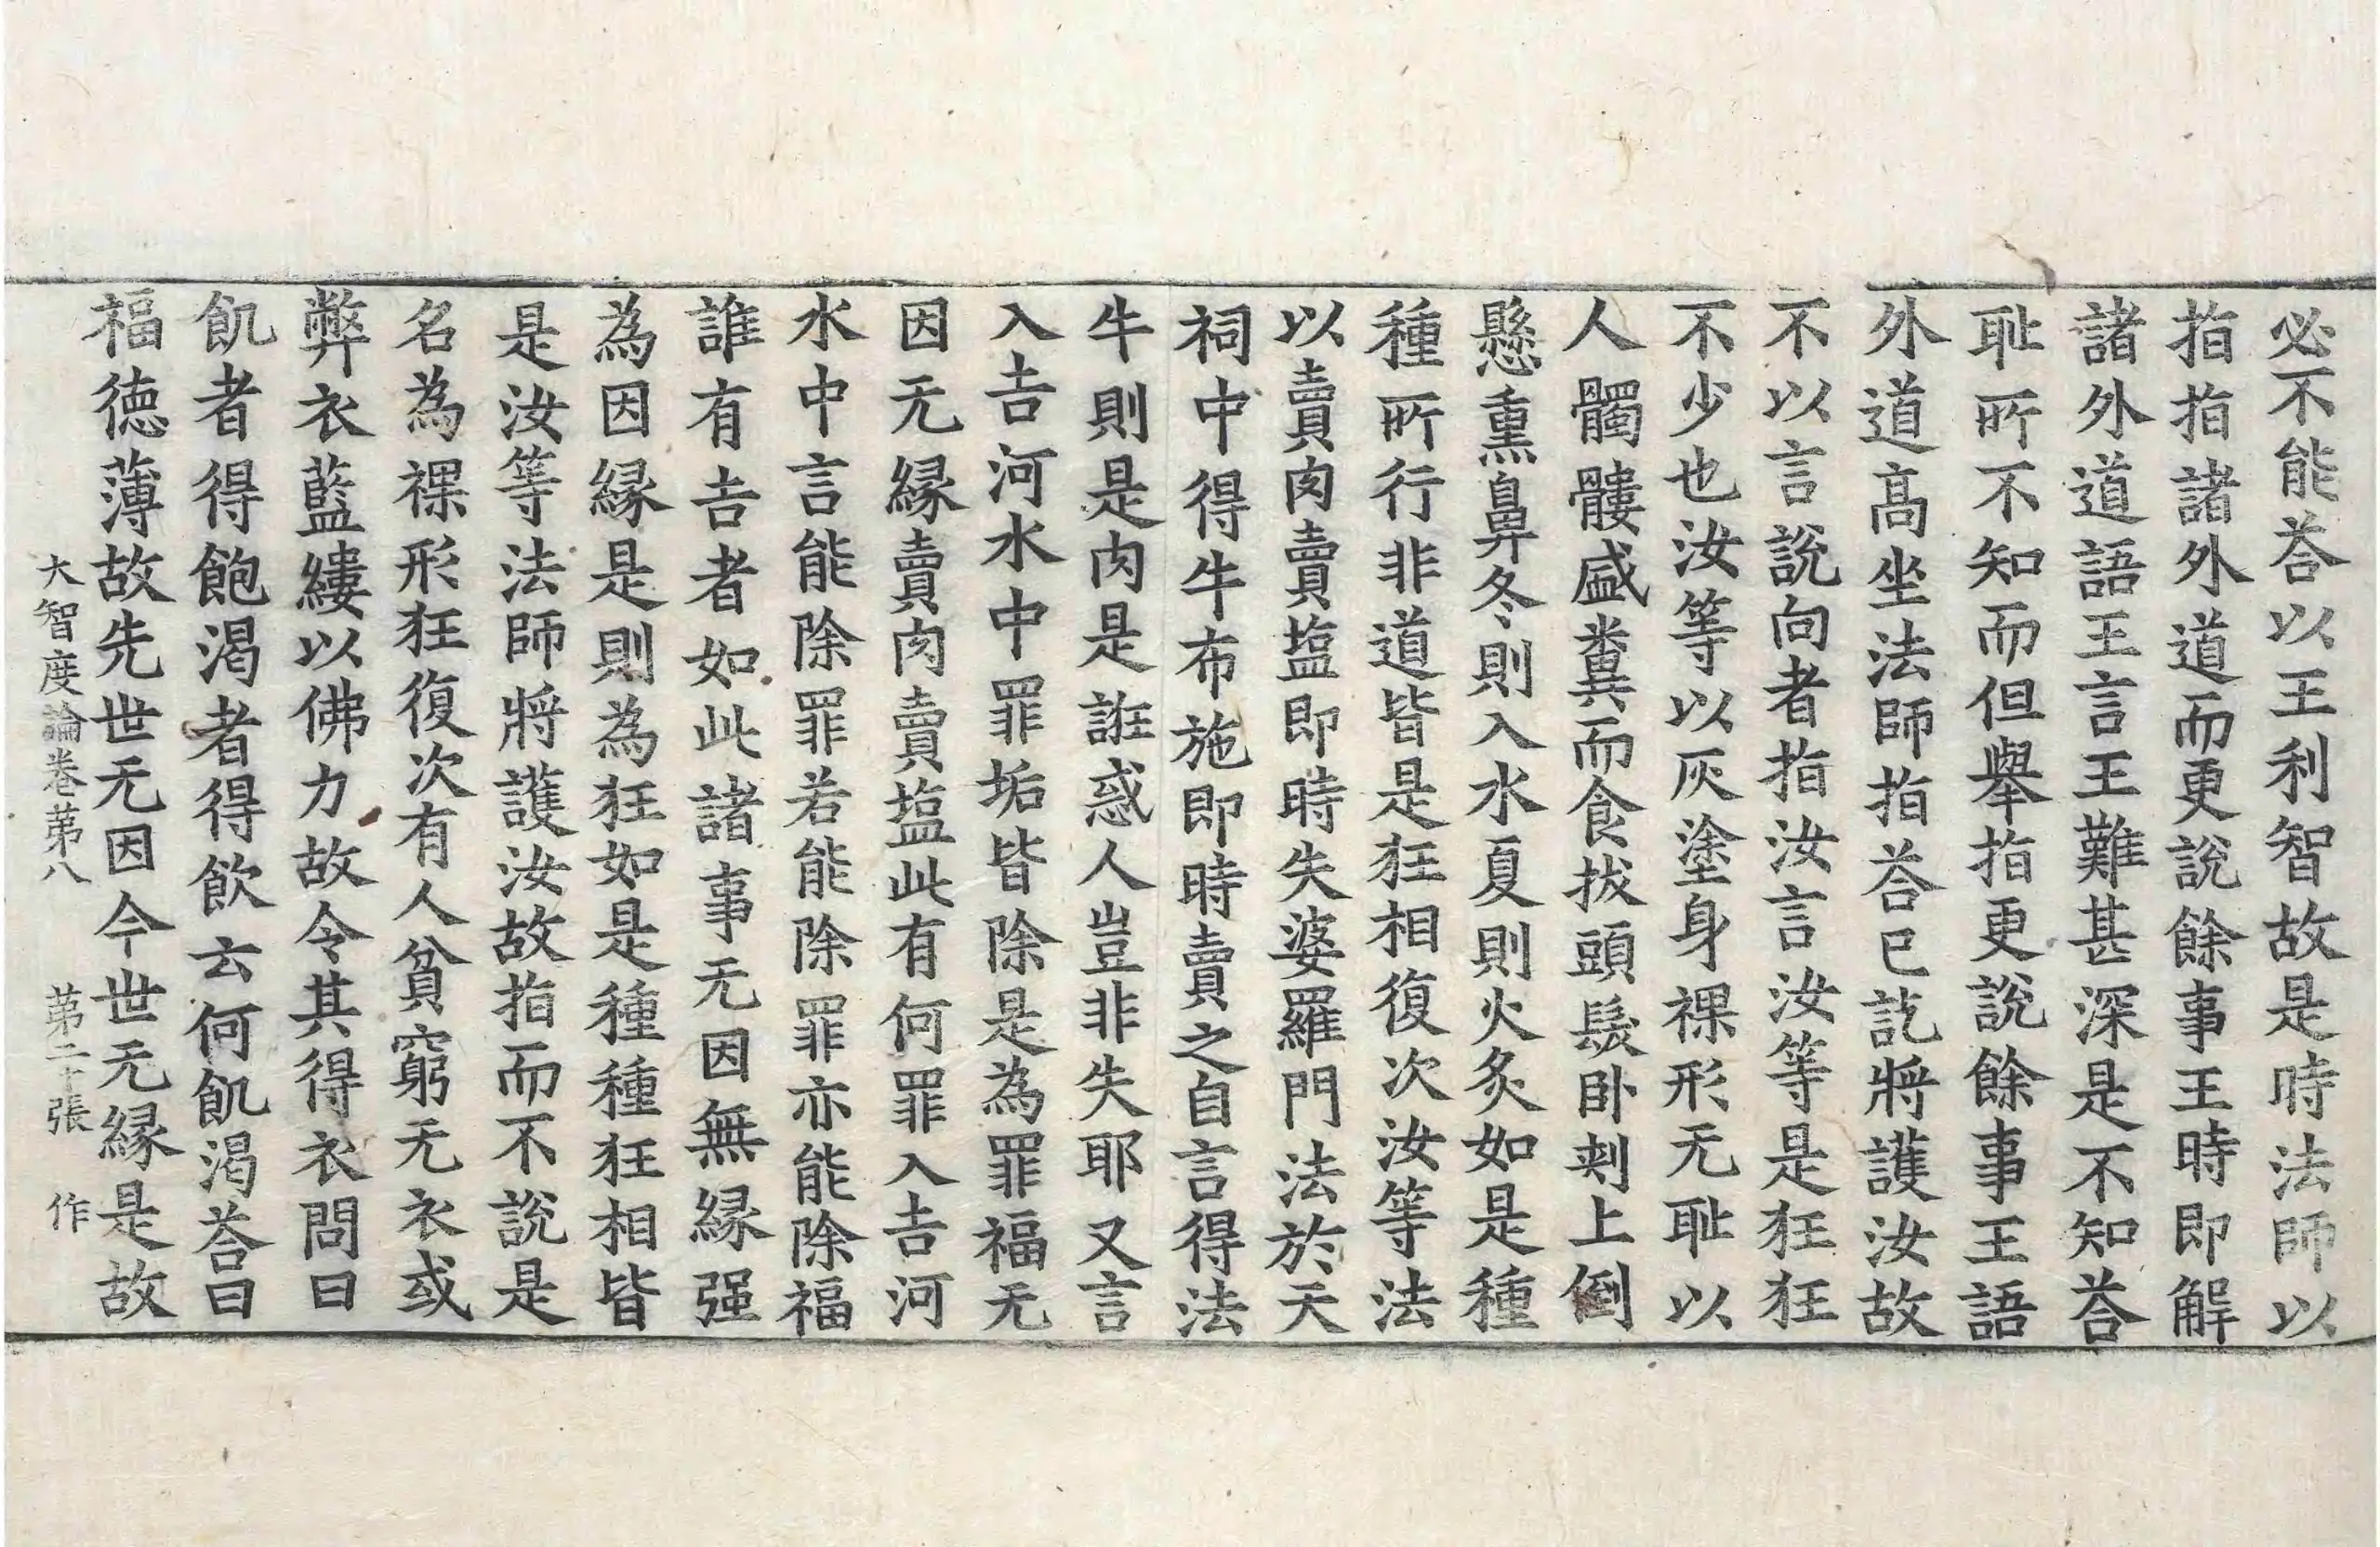 必不能荅以王利智故是時法師以
指指諸外道而更說餘事王時即解
諸外道語王言王難甚深是不知荅
耻所不知而但舉指更說餘事王語
外道高坐法師指荅已訖將護汝故
不以言說向者指汝言汝等是狂狂
不少也汝等以灰塗身裸形无耻以
人髑髏盛糞而食拔頭髮卧刺上倒
懸熏鼻冬則入水夏則火炙如是種
種所行非道皆是狂相復次汝等法
以賣肉賣塩即時失婆羅門法於天
祠中得牛布施即時賣之自言得法
牛則是肉是誑惑人豈非失耶又言
入吉河水中罪垢皆除是為罪福无
因无緣賣肉賣塩此有何罪入吉河
水中言能除罪若能除罪亦能除福
誰有吉者如此諸事无因無緣强
為因緣是則為狂如是種種狂相皆
是汝等法師將護汝故指而不說是
名為裸形狂復次有人貧窮无衣或
弊衣藍縷以佛力故令其得衣問曰
飢者得飽渴者得飲云何飢渴荅曰
福德薄故先世无因今世无緣是故
大智度論卷第八 第二十張 作